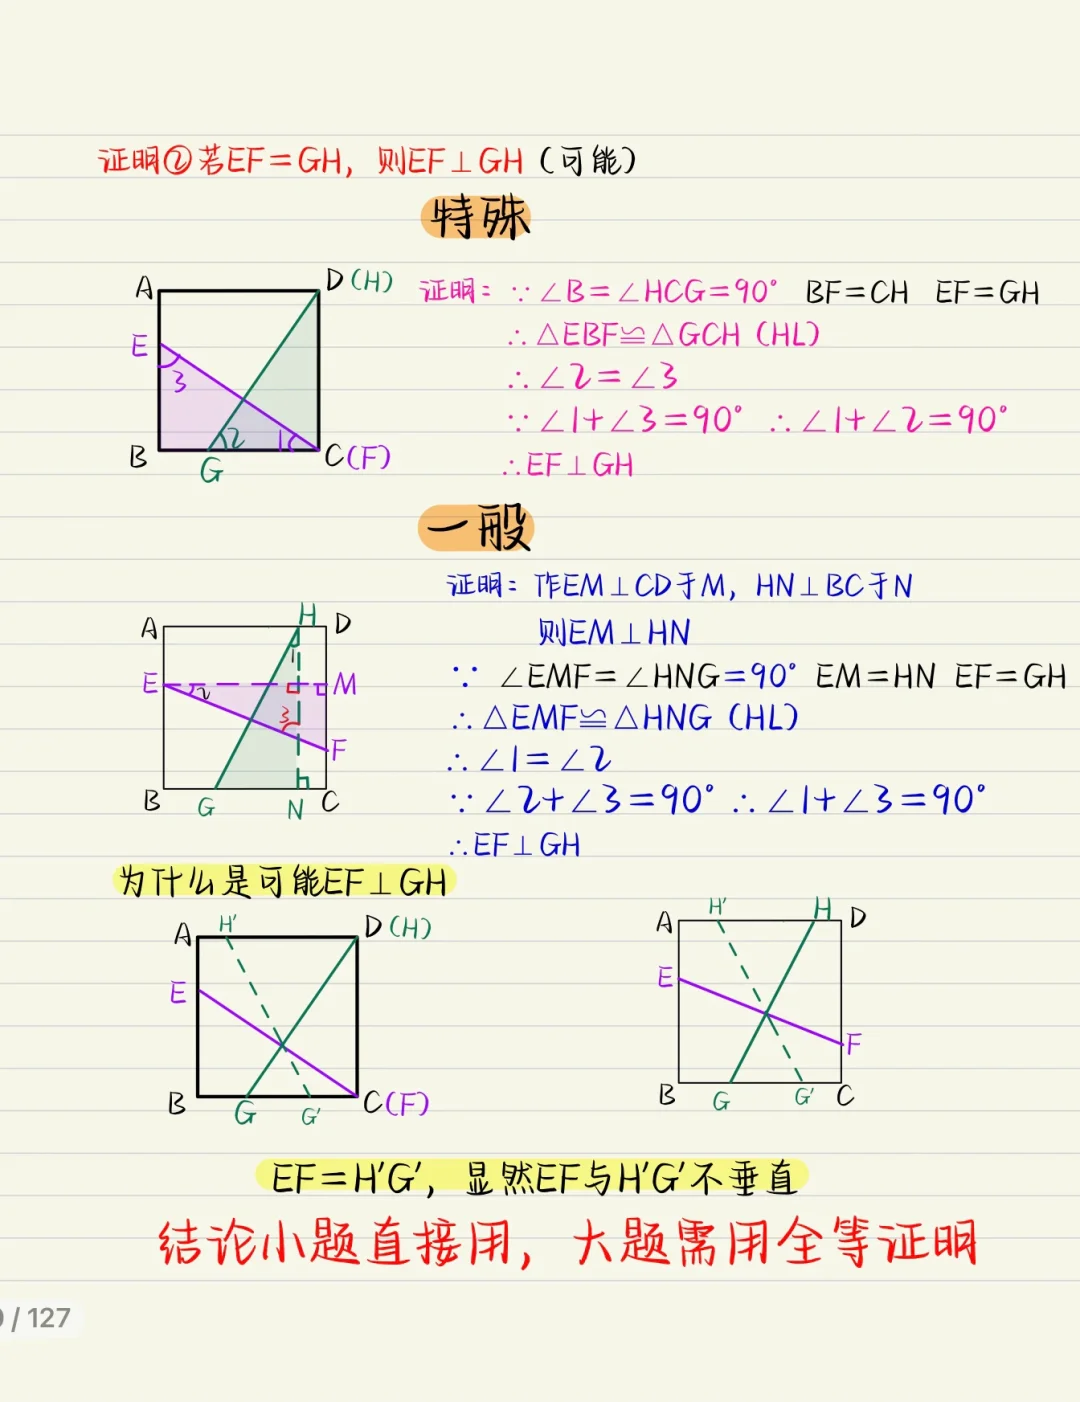 证明②若EF=GH, 则EF⊥GH（可能）
特殊
A
D(H)
E
3
2
1
B
G
C(F)
证明: ∵∠B=∠HCG=90° BF=CH EF=GH
∴△EBF≌△GCH (HL)
∴∠2=∠3
∵∠1+∠3=90° ∴∠1+∠2=90°
∴EF⊥GH
一般
A
H
D
1
E
2
M
3
F
B
G
N
C
证明: 作EM⊥CD于M, HN⊥BC于N
则EM⊥HN
∵ ∠EMF=∠HNG=90° EM=HN EF=GH
∴△EMF≌△HNG (HL)
∴∠1=∠2
∵∠2+∠3=90° ∴∠1+∠3=90°
∴EF⊥GH
为什么是可能EF⊥GH
A
H'
D(H)
E
B
G
G'
C(F)
A
H'
H
D
E
F
B
G
G'
C
EF=H'G', 显然EF与H'G'不垂直
结论小题直接用, 大题需用全等证明
/ 127